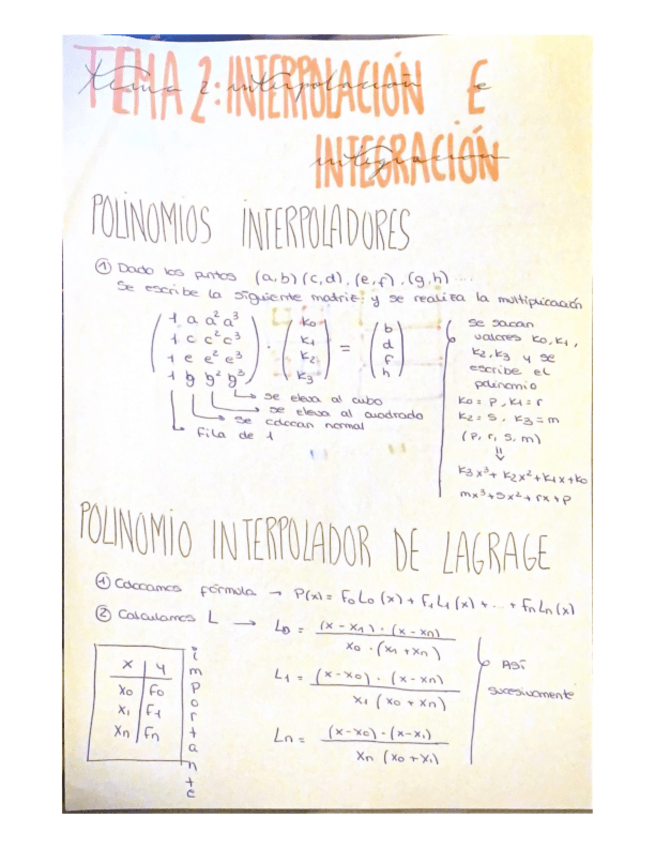 TEMA 2: INTERPOLACIÓN E
Tema 2 interpolación e
INTEGRACIÓN
integración
POLINOMIOS INTERPOLADORES
① Dado los puntos (a,b) (c,d), (e,f), (g,h) ....
Se escribe la siguiente matriz y se realiza la multiplicación
( 1 a a² a³ ) ( k0 ) ( b )
( 1 c c² c³ ) · ( k1 ) = ( d )
( 1 e e² e³ ) ( k2 ) ( f )
( 1 g g² g³ ) ( k3 ) ( h )
→ se eleva al cubo
→ se eleva al cuadrado
→ se colocan normal
→ fila de 1
se sacan
valores k0, k1,
k2, k3 y se
escribe el
polinomio
k0 = p, k1 = r
k2 = s, k3 = m
(p, r, s, m)
⇓
k3x³ + k2x² + k1x + k0
mx³ + sx² + rx + p
POLINOMIO INTERPOLADOR DE LAGRAGE
① Colocamos fórmula → P(x) = f0L0(x) + f1L1(x) + ... + fnLn(x)
② Calculamos L → L0 = (x - x1) · (x - xn) / x0 · (x1 + xn)
L1 = (x - x0) · (x - xn) / x1 (x0 + xn)
Ln = (x - x0) · (x - x1) / xn (x0 + x1)
Así
sucesivamente
x | y
x0 | f0
x1 | f1
xn | fn
importante